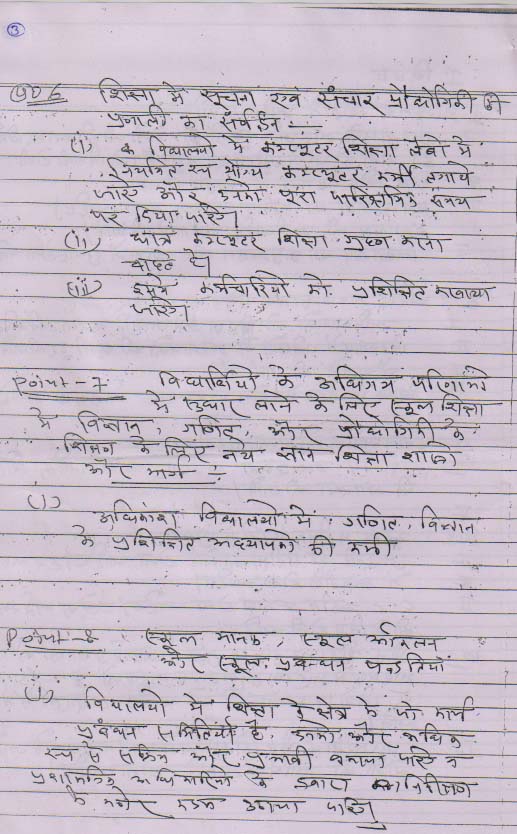 ③
शिक्षा में सूचना एवं संचार प्रौद्योगिकी की
प्रणाली का संवर्धन :-
(i) क विद्यालयों में कम्प्यूटर शिक्षा लेबों में
नियमित रूप योग्य कम्प्यूटर कर्मी लगाये
जाये और उनको पूरा पारिश्रमिक समय
पर दिया जाये।
(ii) छात्र कम्प्यूटर शिक्षा ग्रहण करना
चाहते है।
(iii) इसमें कर्मचारियों को प्रशिक्षित करवाया
जाये।
Point-7 विद्यार्थियों के अधिगम परिणामों
में सुधार लाने के लिए स्कूल शिक्षा
में विज्ञान, गणित, और प्रौद्योगिकी के
शिक्षण के लिए नये ज्ञान शिक्षा शास्त्रों
और मार्ग :-
(i)
अधिकांश विद्यालयों में गणित, विज्ञान
के प्रशिक्षित अध्यापकों की कमी
Point-8 स्कूल मानक, स्कूल आंकलन
और स्कूल प्रबन्धन पद्धतियां
(i) विद्यालयों में शिक्षा के क्षेत्र के जो कार्य
प्रबंधन समितियां है, उनको और अधिक
रूप से सक्रिय और प्रभावी बनाया जाये व
प्रशासनिक अधिकारियों के द्वारा निरीक्षण
के कठोर कदम उठाया जाये।